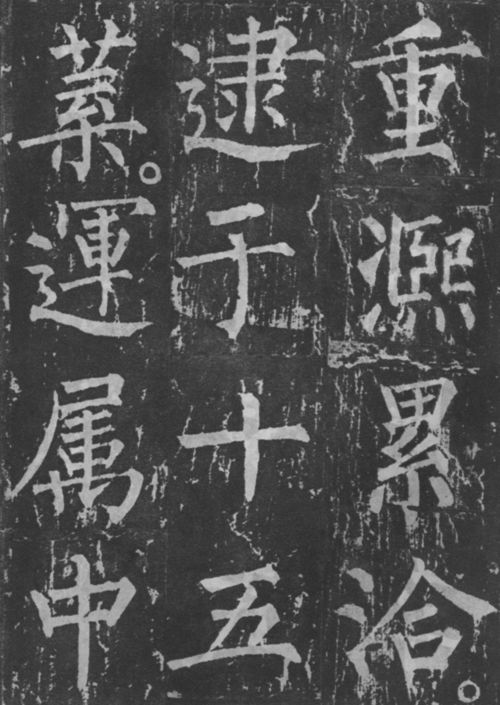 重凞累洽。
逮于十五
葉。運属中